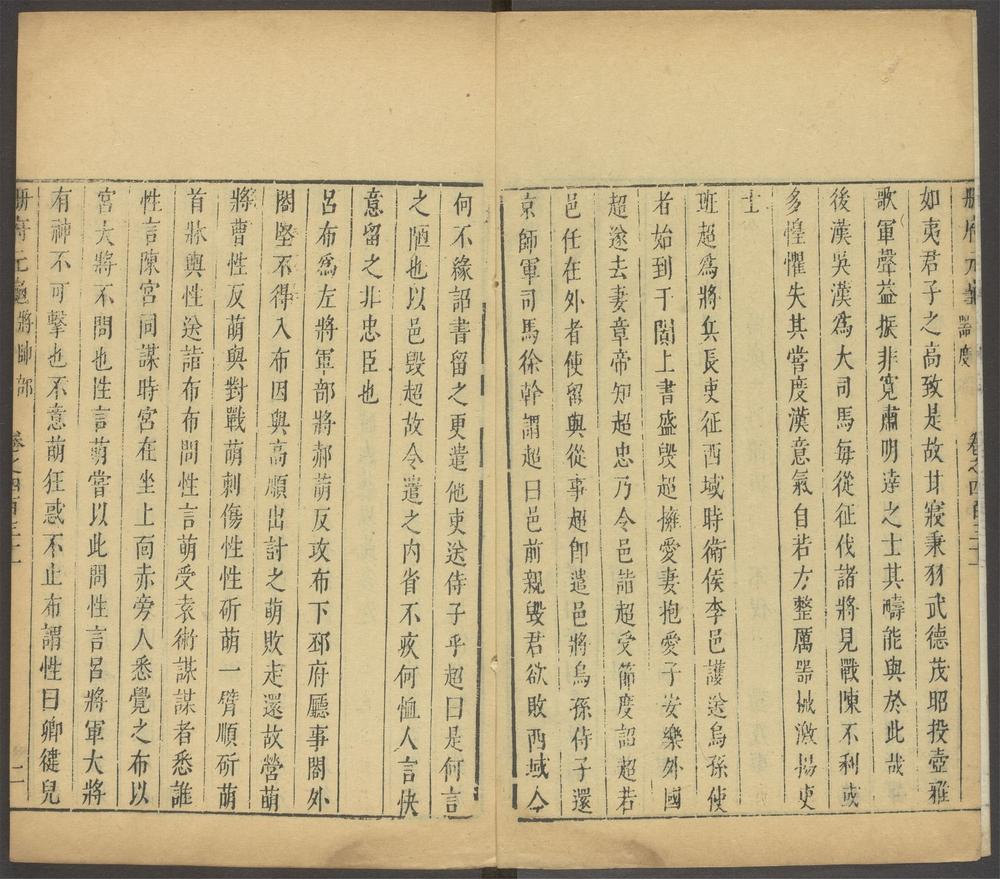 冊府元龜 器度 卷之四百三十一
如夷君子之高致是故甘寢秉羽武德茂昭投壺雅
歌軍聲益振非寬肅明達之士其疇能與於此哉
後漢吳漢為大司馬每從征伐諸將見戰陳不利或
多惶懼失其嘗度漢意氣自若方整厲器械激揚吏
士
班超為將兵長吏征西域時衛侯李邑護送烏孫使
者始到于闐上書盛毀超擁愛妻抱愛子安樂外國
超遂去妻章帝知超忠乃令邑詣超受節度詔超若
邑任在外者使留與從事超卽遣邑將烏孫侍子還
京師軍司馬徐幹謂超曰邑前親毀君欲敗西域今
何不緣詔書留之更遣他吏送侍子乎超曰是何言
之陋也以邑毀超故令遣之內省不疚何恤人言快
意留之非忠臣也
呂布為左將軍部將郝萌反攻布下邳府廳事閤外
閤堅不得入布因與高順出討之萌敗走還故營萌
將曹性反萌與對戰萌刺傷性性斫萌一臂順斫萌
首牀輿性送詣布布問性言萌受袁術謀謀者悉誰
性言陳宮同謀時宮在坐上面赤旁人悉覺之布以
宮大將不問也性言萌嘗以此問性言呂將軍大將
有神不可擊也不意萌狂惑不止布謂性曰卿健兒
冊府元龜 將帥部 卷之四百三十一 二